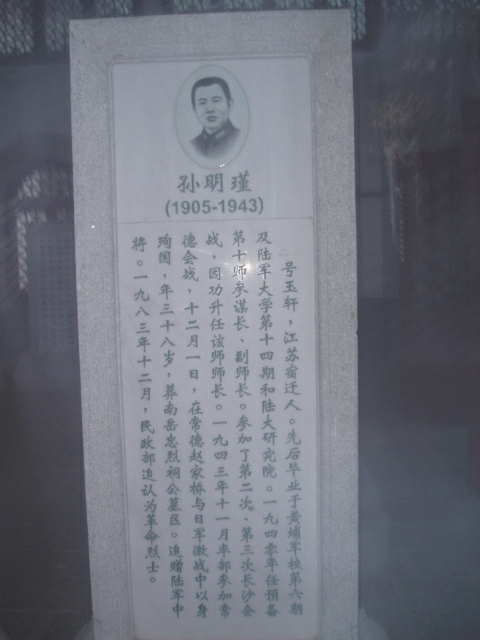 孙明瑾
(1905-1943)
号玉轩，江苏宿迁人。先后毕业于黄埔军校第六期
及陆军大学第十四期和陆大研究院。一九四零年任预备
第十师参谋长、副师长。参加了第二次、第三次长沙会
战，因功升任该师师长。一九四三年十一月率部参加常
德会战，十二月一日，在常德赵家桥与日军激战中以身
殉国，年三十八岁，葬南岳忠烈祠公墓区。追赠陆军中
将。一九八三年十二月，民政部追认为革命烈士。